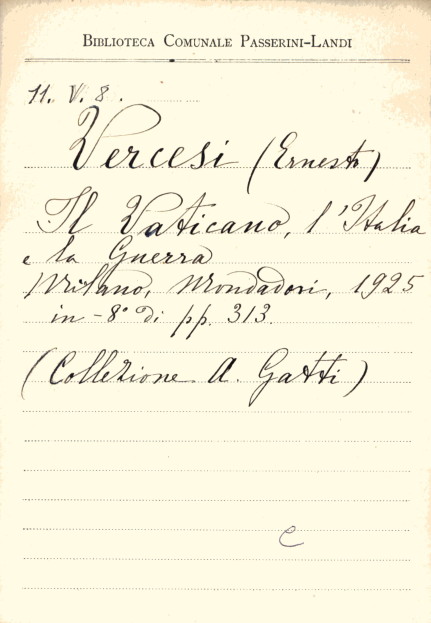 BIBLIOTECA COMUNALE PASSERINI-LANDI
11. V. 8.
Vercesi (Ernesto)
Il Vaticano, l'Italia
e la Guerra
Milano, Mondadori, 1925
in-8° di pp. 313.
(Collezione A. Gatti)
e